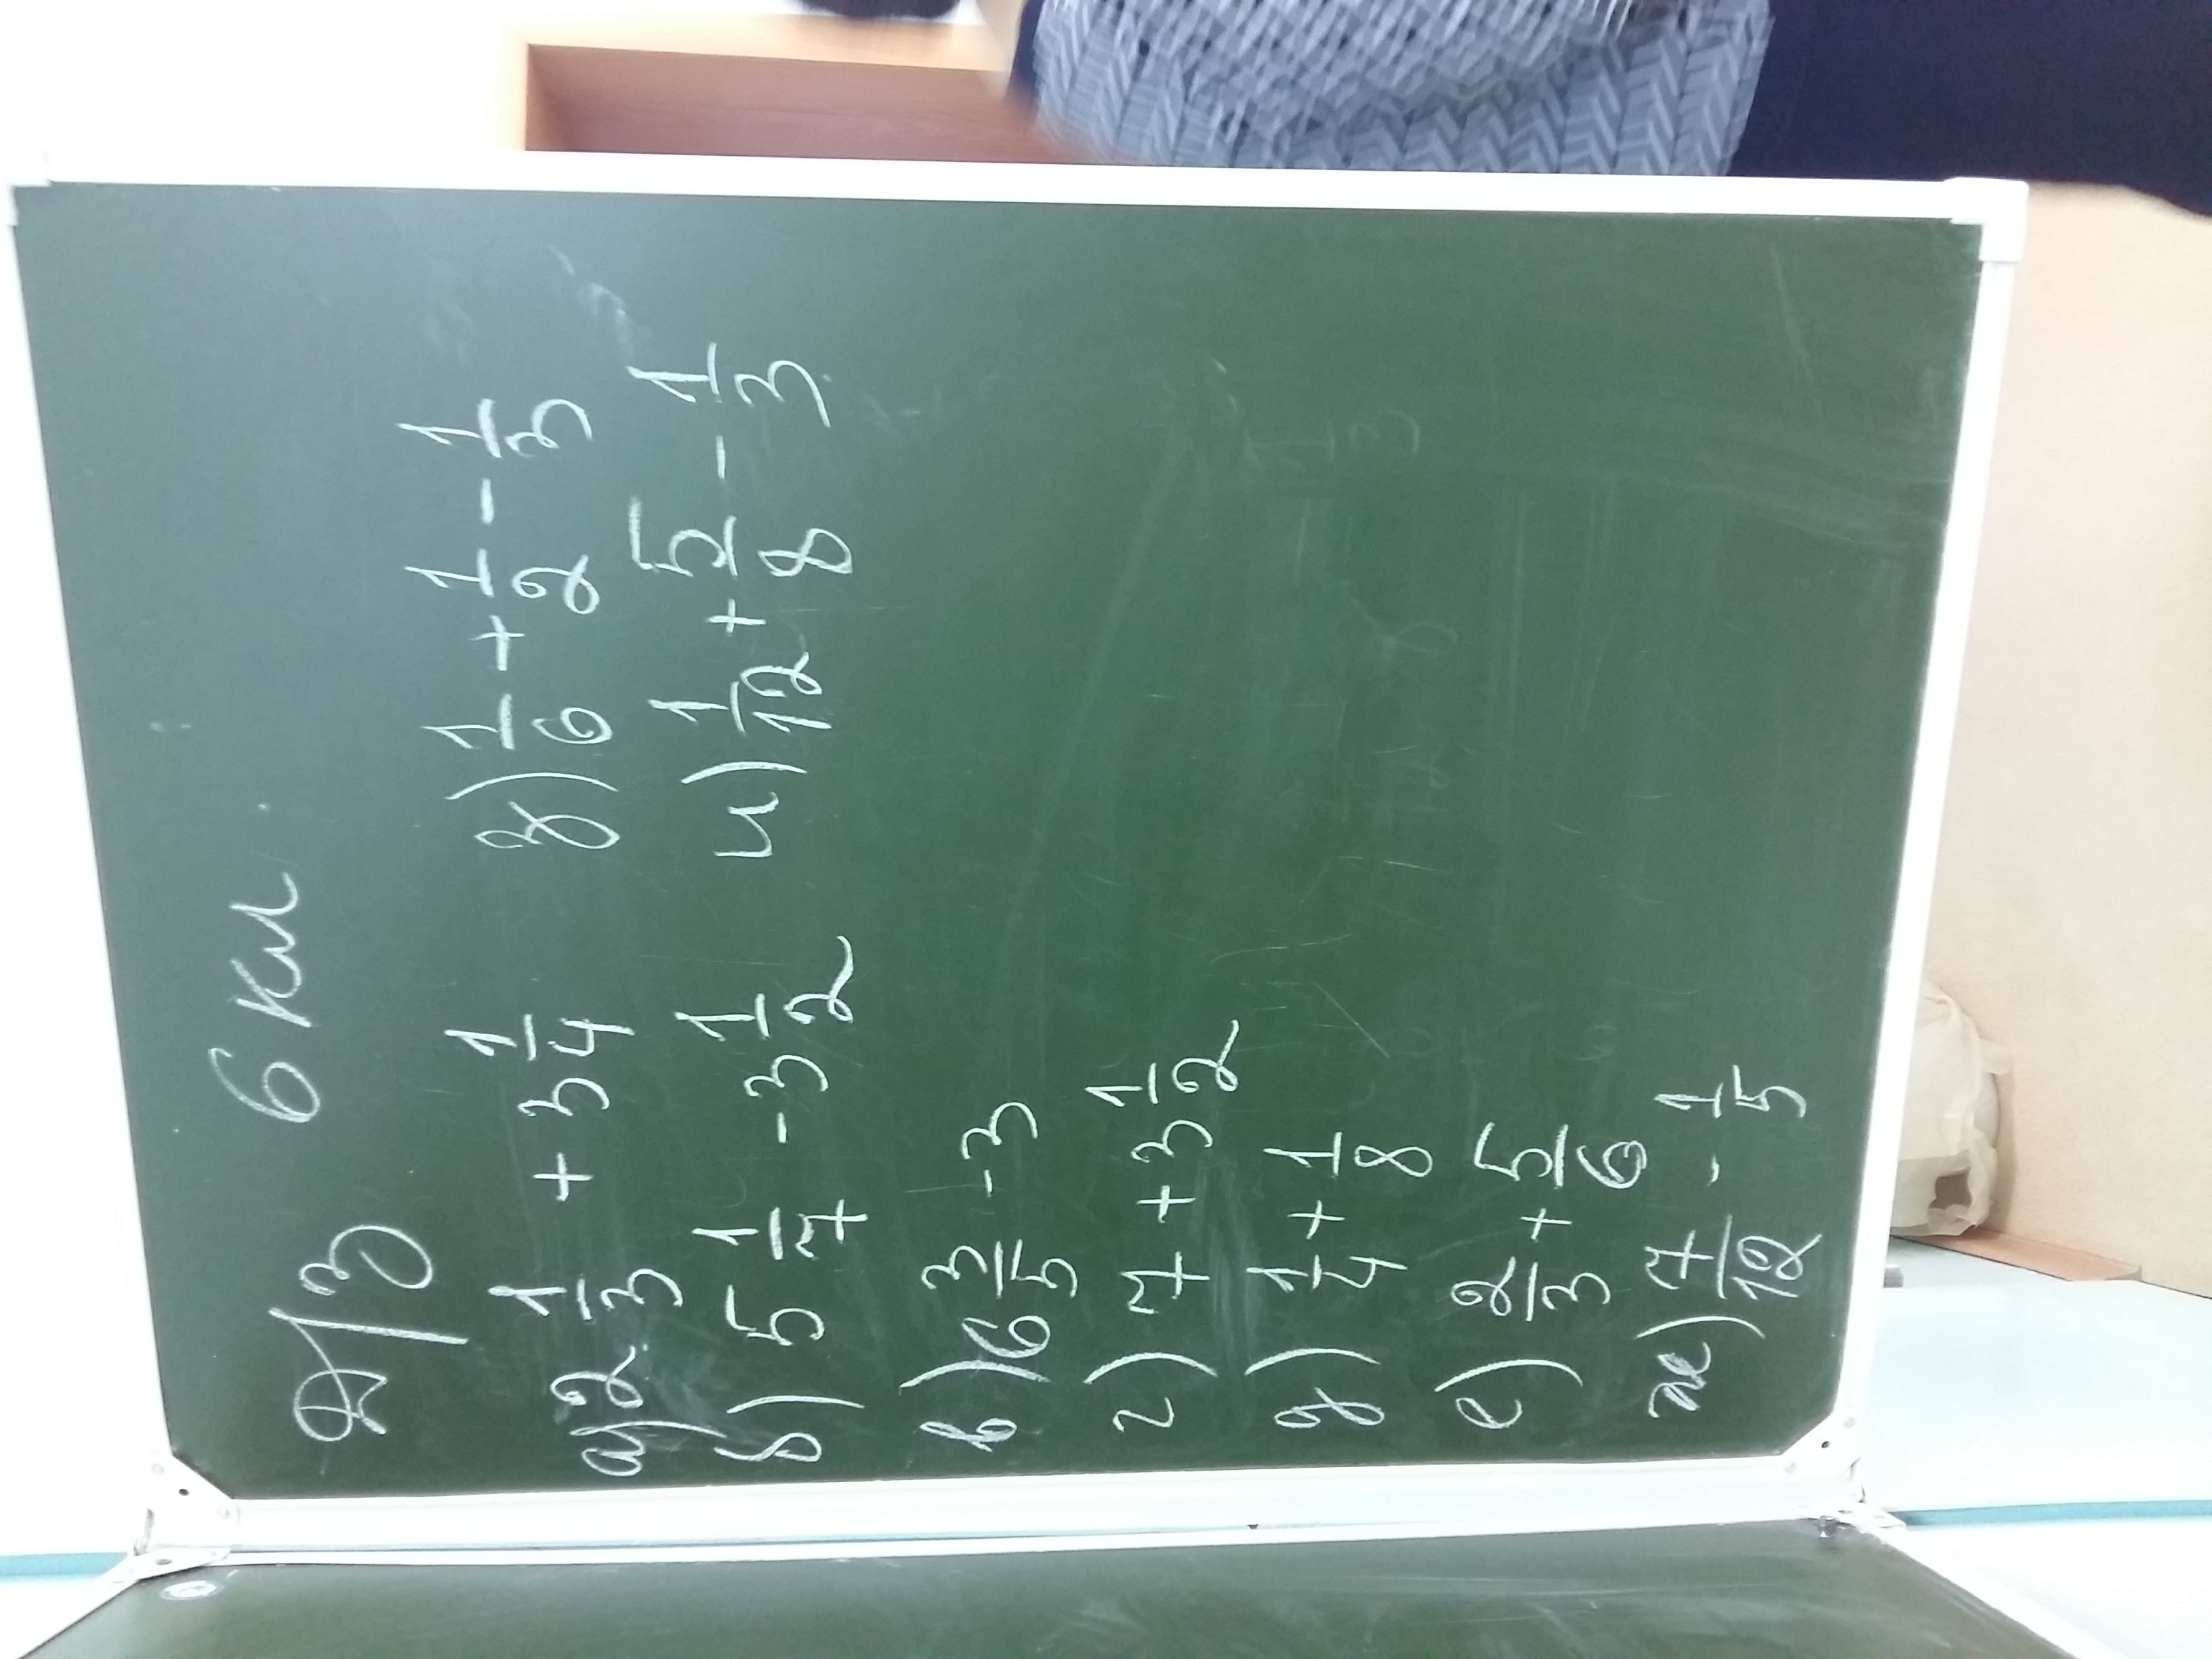 Д/З 6 кл.
а) 2 1/3 + 3 1/4
б) 5 1/7 - 3 1/2
в) 6 3/5 - 3
г) 7 + 3 1/2
д) 1/4 + 1/8
е) 2/3 + 5/6
ж) 7/12 - 1/5
з) 1/6 + 1/2 - 1/3
и) 1/12 + 5/8 - 1/3